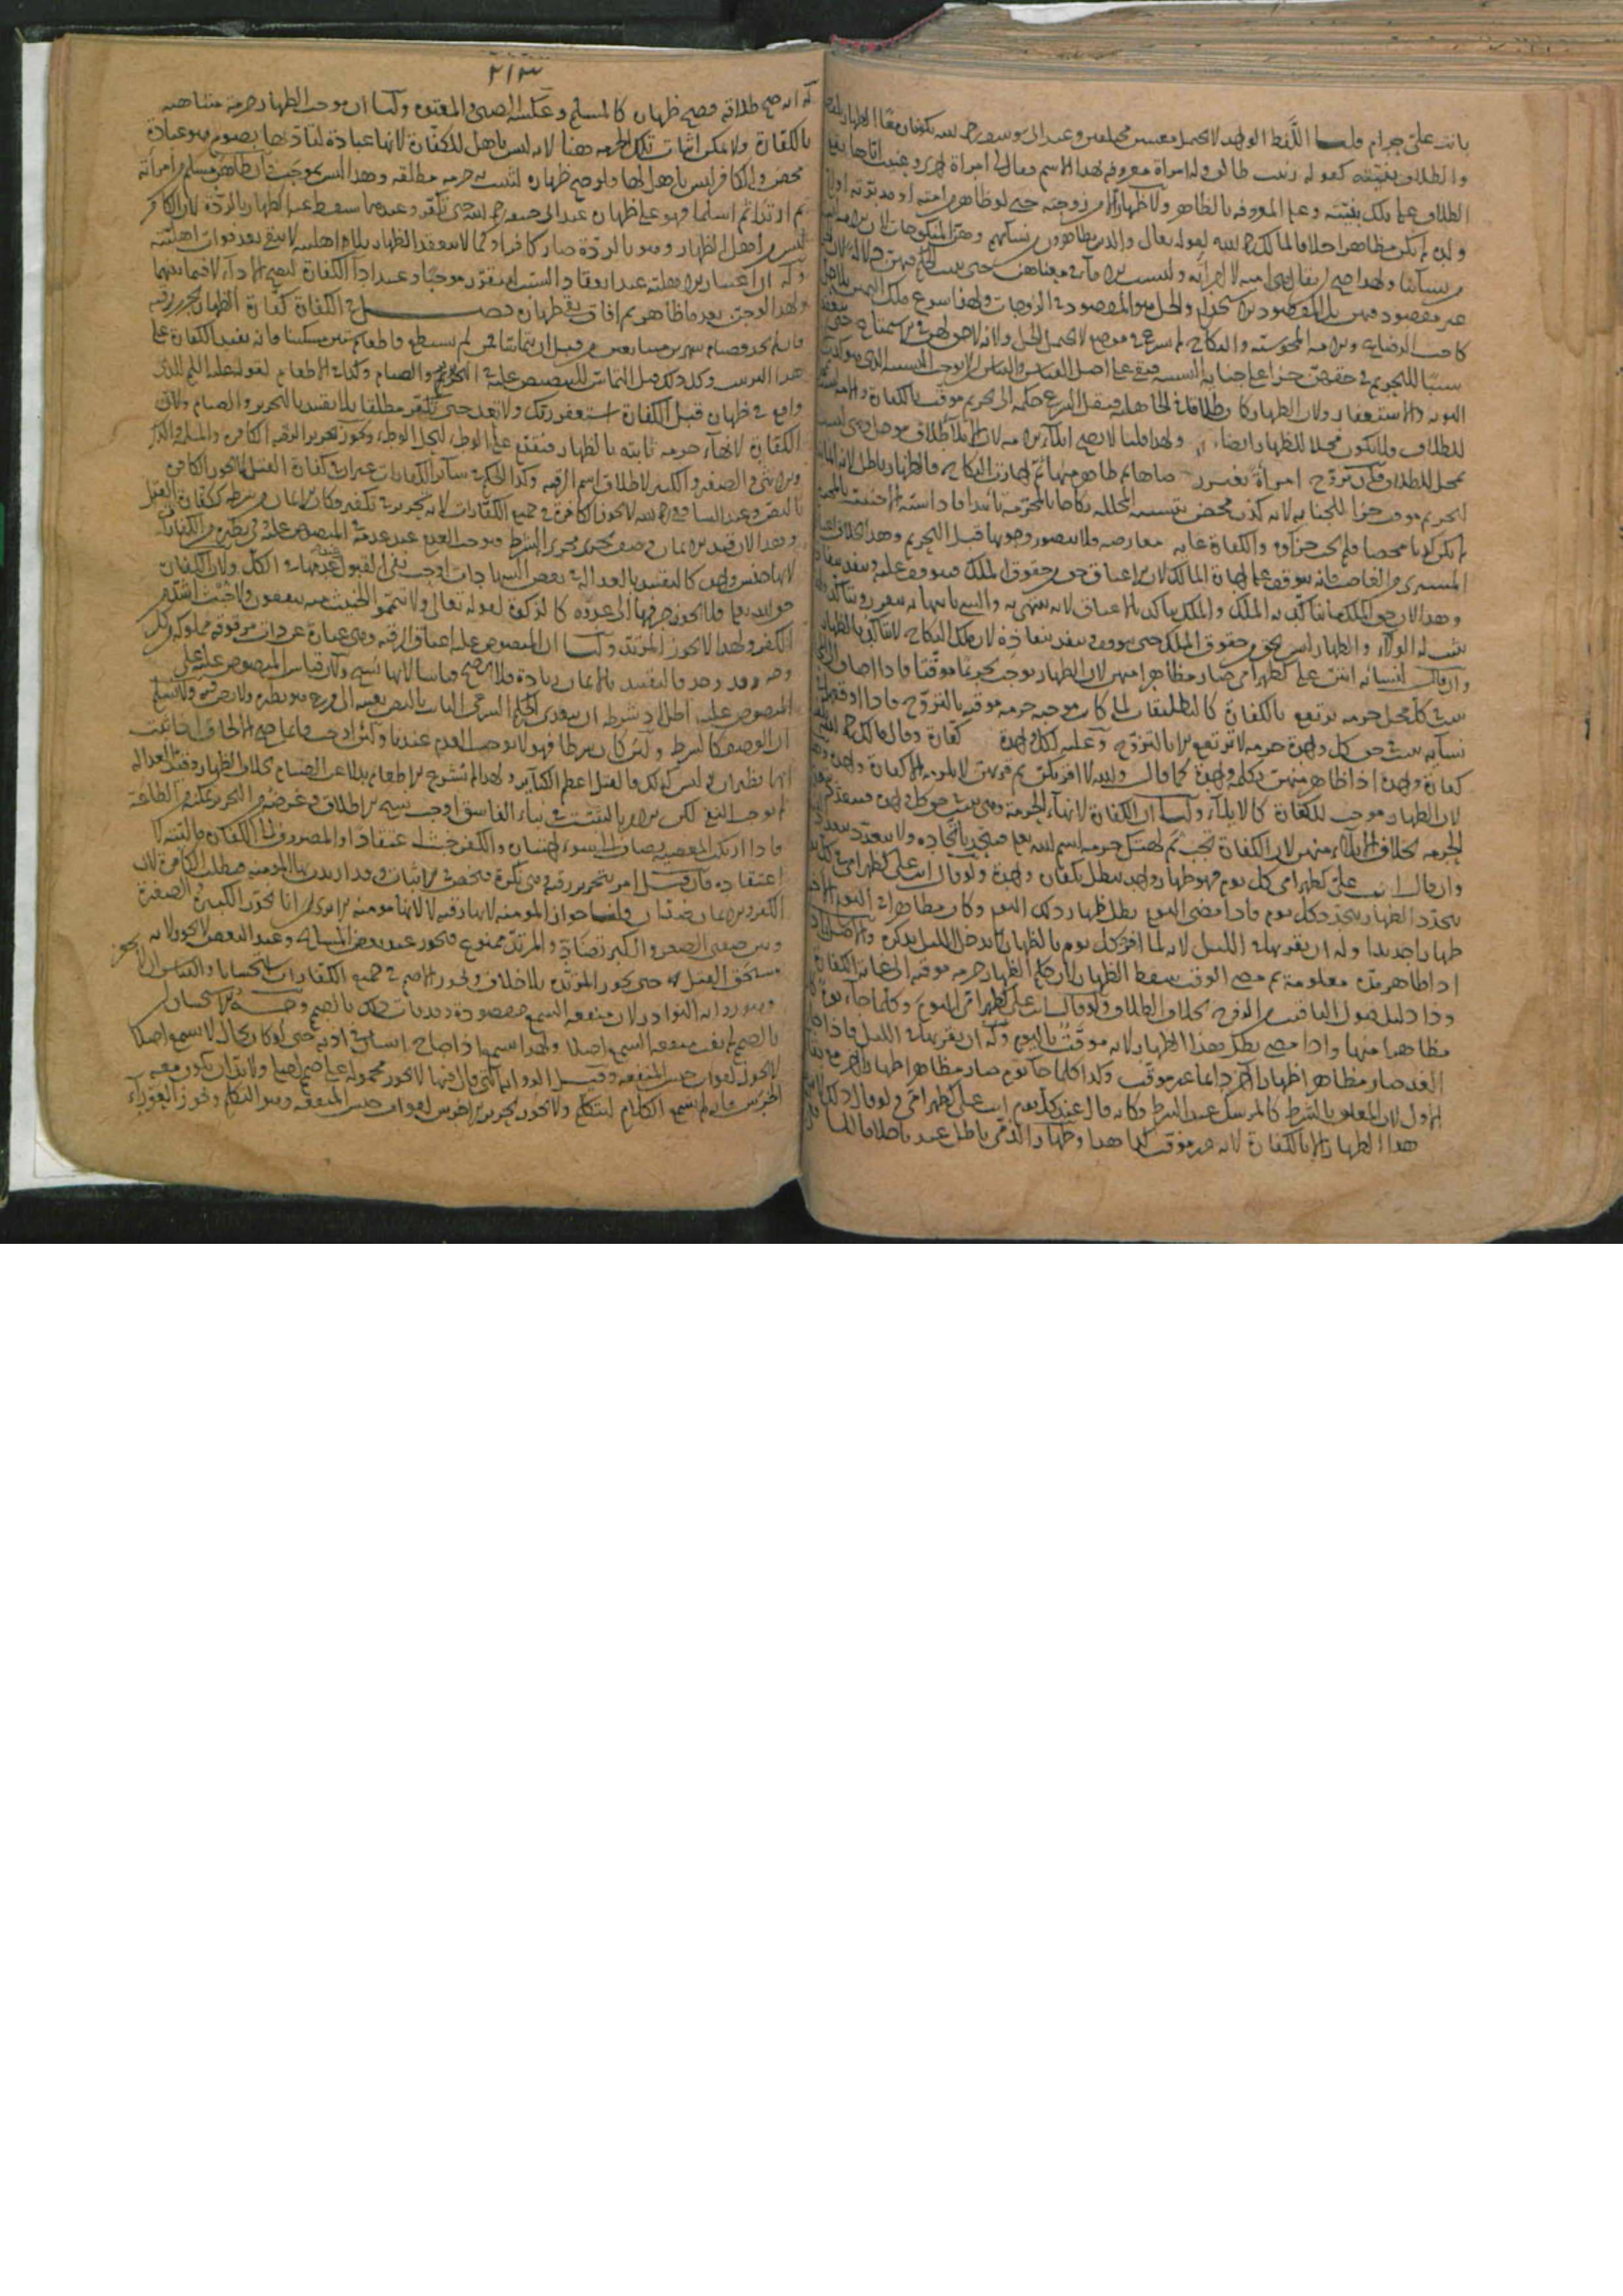 بانت علي حرام قلنا اللفظ الواحد لا يحتمل معنيين مختلفين وعند ابي يوسف رحمه الله يكونان معا الظهار بلفظه
والطلاق بنيته كقوله زينب طالق وله امرأة معروفة بهذا الاسم وقال لي امرأة اخرى وعنيت اياها يقع
الطلاق على تلك بنيته وعلى المعروفة بالظاهر ولا ظهار الا من زوجته حتى لو ظاهر من امته او مدبرته او
ولده لم يكن مظاهرا خلافا لمالك رحمه الله لقوله تعالى والذين يظاهرون من نسائهم
من نسائنا ولهذا صح ان يقال هي امته لا امرأته وليست الامة في معناهن حتى يثبت الحكم فيهن دلالة لان
غير مقصود فيهن بل المقصود الاستخدام والحل هو المقصود في الزوجات ولهذا شرع ملك اليمين
كاخت الرضاعة والامة المجوسية والنكاح لم يشرع في موضع لا يحتمل الحل
سببا للتحريم في حقهن جزاء على جناية النسبة فبقي على اصل القياس
التوبة والاستغفار ولان الظهار كان طلاقا في الجاهلية فنقل الشرع حكمه الى تحريم موقت بالكفارة والامة ليست
للطلاق فلا يكون محلا للظهار ايضا ولهذا قلنا لا يصح ايلاء الامة لان الايلاء طلاق مؤجل وهي ليست
بمحل للطلاق فان تزوج امرأة بغير رضاها ثم ظاهر منها ثم اجازت النكاح فالظهار باطل
التحريم موقت جزاء للجناية لانه كذب محض بتشبيه المحللة نكاحا بالمحرمة تأبيدا فاذا
لم يكن كذبا محضا فلم يجب جزاؤه والكفارة
المشتري من الغاصب فانه يتوقف على اجازة المالك لان الاعتاق حق من حقوق الملك فيتوقف عليه وينفذ بنفاذه
وهذا لان حق الملك ما يتأكد به الملك والملك يتأكد بالاعتاق لانه ينتهي به والشيء بانتهائه يتقرر ويتأكد
يثبت له الولاء والظهار ليس بحق من حقوق الملك حتى يتوقف وينفذ بنفاذه لان ملك النكاح لا يتأكد بالظهار
وان قال لنسائه انتن علي كظهر امي صار مظاهرا منهن لان الظهار يوجب تحريما موقتا فاذا اضافه الى
يثبت في كل محل حرمة ترتفع بالكفارة كالتطليقات لما كان موجبه حرمة موقتة بالتزوج فاذا اوقعها على
نسائه يثبت في حق كل واحدة حرمة لا ترتفع الا بالتزوج وعليه لكل واحدة كفارة وقال مالك رحمه الله
كفارة واحدة اذا ظاهر منهن بكلمة واحدة كما قال والله لا اقربكن ثم قربهن لا يلزمه الا كفارة واحدة
لان الظهار موجب للكفارة كالايلاء ولنا ان الكفارة لانهاء الحرمة وهي تثبت في حق كل واحدة فتتعدد
الحرمة بخلاف الايلاء منهن لان الكفارة تجب ثم لهتك حرمة اسم الله تعالى فيتحد باتحاده ولا يتعدد
وان قال انت علي كظهر امي كل يوم فهو ظهار واحد يبطل بكفارة واحدة ولو قال انت علي كظهر امي في كل يوم
يتجدد الظهار بتجدد كل يوم فاذا مضى اليوم بطل ظهار ذلك اليوم وكان مظاهرا في اليوم الاخر
ظهارا جديدا وله ان يقربها في الليل لانه لما افرد كل يوم بالظهار لم يدخل الليل بذكره والاصل
اذا ظاهر مدة معلومة ثم مضى الوقت سقط الظهار لان حكم الظهار حرمة موقتة الى غاية الكفارة
وذا دليل قبول التأقيت والفرق بخلاف الطلاق ولو قال انت علي كظهر امي اليوم وكلما جاء يوم
مظاهرا منها واذا مضى بطل هذا الظهار لانه موقت باليوم وله ان يقربها في الليل فاذا جاء
الغد صار مظاهرا ظهارا اخر دائما غير موقت وكذا كلما جاء يوم صار مظاهرا ظهارا اخر مع بقاء
الاول لان المعلق بالشرط كالمرسل عند الشرط وكانه قال عند كل يوم انت علي كظهر امي
هذا الظهار الا بالكفارة لانه غير موقت لما هذا وظهار الذمي باطل عندنا خلافا للشافعي
٢١٣
له انه صح طلاقه فصح ظهاره كالمسلم وعكسه الصبي والمعتوه ولنا ان موجب الظهار حرمة متناهية
بالكفارة ولا يمكن اثبات تلك الحرمة هنا لانه ليس باهل للكفارة لانها عبادة لتأديها بصوم هو عبادة
محض والكافر ليس باهل لها ولو صح ظهاره لثبت به حرمة مطلقة وهذا ليس بموجبه فان ظاهر مسلم من امرأته
ثم ارتدا ثم اسلما فهو على ظهاره عند ابي حنيفة رحمه الله حتى يكفر وعندهما سقط عنه الظهار بالردة لان الكافر
ليس من اهل الظهار وهو بالردة صار كافرا وكما لا ينعقد الظهار بلا اهلية لا يبقى بعد فوات اهليته
وله ان اعتبار الاهلية عند انعقاد السبب ليتقرر موجبا وعند اداء الكفارة ليصح الاداء لا فيما بينهما
ولهذا لو جن بعد ما ظاهر ثم افاق بقي ظهاره فصل في الكفارة كفارة الظهار تحرير رقبة
فان لم يجد فصيام شهرين متتابعين من قبل ان يتماسا فمن لم يستطع فاطعام ستين مسكينا فانه يفيد الكفارة على
هذا الترتيب وكل ذلك قبل التماس للتنصيص عليه في التحرير والصيام وكذا في الاطعام لقوله عليه السلام للذي
واقع في ظهاره قبل الكفارة استغفر ربك ولا تعد حتى تكفر مطلقا بلا تقييد بالتحرير والصيام ولان
الكفارة لانهاء حرمة ثابتة بالظهار فتقدم على الوطئ ليحل الوطئ ويجوز تحرير الرقبة الكافرة والمسلمة والذكر
والانثى والصغير والكبير لاطلاق اسم الرقبة وكذا الحكم في سائر الكفارات غير ان في كفارة القتل لا يجوز الكافرة
بالنص وعند الشافعي رحمه الله لا يجوز الكافرة في جميع الكفارات لانه تحرير في تكفير فكان الايمان من شرطه ككفارة القتل
وهذا لان قيد الايمان وصف يجري مجرى الشرط فيوجب العدم عند عدمه في المنصوص عليه وفي نظيره من الكفارات
لانها جنس واحد كالتقييد بالعدالة في بعض الشهادات اوجب نفي القبول عند عدمها في الكل ولان الكفارة
حق الله تعالى فلا يجوز صرفها الى عدوه كالزكوة لقوله تعالى ولا تيمموا الخبيث منه تنفقون ولا خبث اشد من
الكفر ولهذا لا يجوز المرتد ولنا ان المنصوص عليه اعتاق الرقبة وهي عبارة عن ذات مرقوقة مملوكة من كل
وجه وقد وجد فالتقييد بالايمان زيادة فلا يصح قياسا لانها نسخ ولان قياس المنصوص عليه على
المنصوص عليه باطل اذ شرطه ان يتعدى الحكم الشرعي الثابت بالنص بعينه الى فرع هو نظيره ولا نص فيه ولا نسلم
ان الوصف كالشرط ولئن كان شرطا فهو لا يوجب العدم عندنا ولئن اوجب فانما يصح الالحاق اذا ثبت
انها نظيران وليس كذلك فالقتل اعظم الكبائر ولهذا لم يشرع الاطعام بدلا عن الصيام بخلاف الظهار وقيد العدالة
لم يوجب النفي لكن الامر بالتثبت في نباء الفاسق اوجب نسخ الاطلاق وغرضه من التحرير تمكنه من الطاعة
فاذا ارتكب المعصية يضاف الى سوء اختياره والكفر خبث في اعتقاده او المصروف الى الكفارة ماليته لا
اعتقاده فان قيل امر بتحرير رقبة وهي نكرة فتخص في الاثبات وقد اريدت بها المؤمنة فبطلت الكافرة لان
الكفر والايمان ضدان قلنا جواز المؤمنة لانها رقبة لا لانها مؤمنة الا ترى انا نجوز الكبيرة والصغيرة
وبين صفتي الصغر والكبر تضاد والمرتد ممنوع فيجوز عند بعض المشايخ وعند البعض لا يجوز لانه
مستحق القتل حتى يجوز المرتدة بلا خلاف ويجوز الاصم في جميع الكفارات استحسانا والقياس ان لا يجوز
وهو رواية النوادر لان منفعة السمع مقصودة وقد فاتت تلك بالصمم وجه الاستحسان ان
بالصمم لم يفت منفعة السمع اصلا ولهذا يسمع اذا صاح انسان في اذنه حتى لو كان بحال لا يسمع اصلا
لا يجوز لفوات جنس المنفعة وقيل الرواية التي قال فيها لا يجوز محمولة على اصم اصليا ولا بد ان يكون معه
الخرس فانه لم يسمع الكلام ليتكلم ولا يجوز تحرير الاخرس لفوات جنس المنفعة وهو التكلم ويجوز العوراء